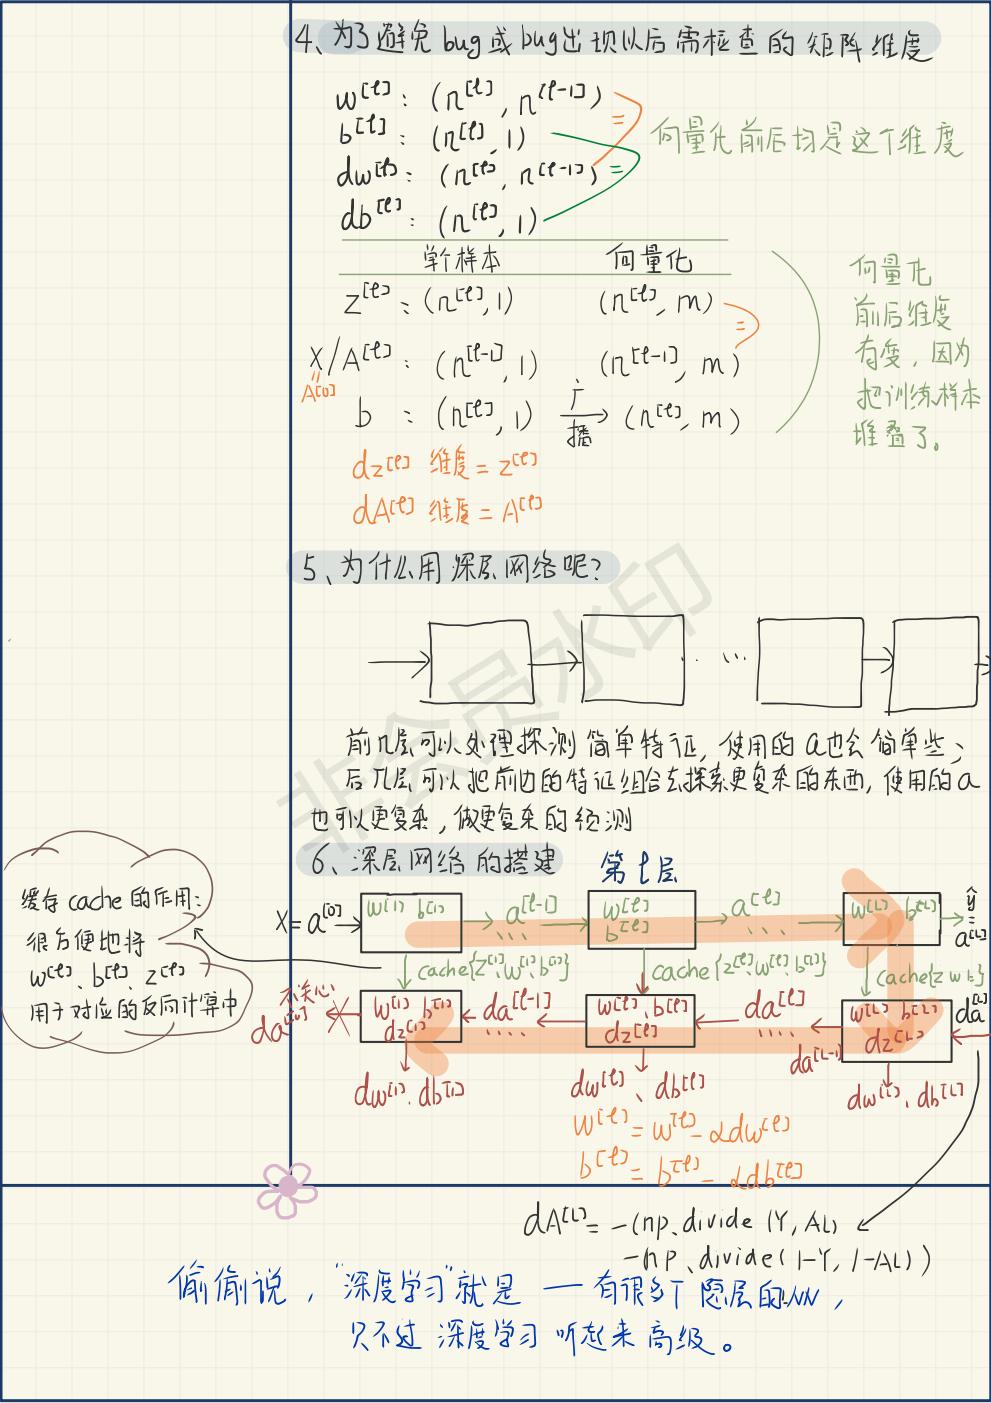 4、为了避免bug或bug出现以后需检查的矩阵维度
w[l]: (n[l], n[l-1])
=
b[l]: (n[l], 1)
向量化前后均是这个维度
dw[l]: (n[l], n[l-1])
=
db[l]: (n[l], 1)
单个样本 向量化
z[l]: (n[l], 1) (n[l], m)
=
X/A[l]: (n[l-1], 1) (n[l-1], m)
=
A[0]
b : (n[l], 1) 广播 (n[l], m)
向量化
前后维度
有变，因为
把训练样本
堆叠了。
dz[l] 维度 = z[l]
dA[l] 维度 = A[l]
5、为什么用深层网络呢?
. ...
非会员水印
前几层可以处理探测简单特征, 使用的a也会简单些;
后几层可以把前边的特征组合去探索更复杂的东西, 使用的a
也可以更复杂, 做更复杂的预测
6、深层网络的搭建
第l层
缓存cache的作用:
很方便地将
w[l]、b[l]、z[l]
用于对应的反向计算中
X = a[0] w[1] b[1] a[l-1] ... w[l] b[l] a[l] ... w[L] b[L] ŷ = a[L]
cache{z[1],w[1],b[1]} cache{z[l],w[l],b[l]} cache{z w b}
不关心
da[0] w[1] b[1] dz[1] da[l-1] .... w[l]、b[l] dz[l] da[l] .... da[L-1] w[L] b[L] dz[L] da[L]
dw[1]、db[1] dw[l]、db[l] dw[L]、db[L]
w[l] = w[l] - αdw[l]
b[l] = b[l] - αdb[l]
dA[L] = -(np.divide(Y, AL)
-np.divide(1-Y, 1-AL))
偷偷说，“深度学习”就是一有很多个隐层的NN，
只不过深度学习听起来高级。